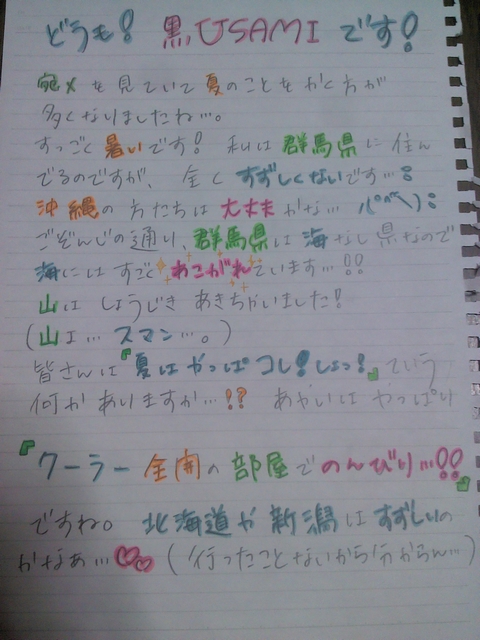 どうも! 黒USAMIです!
宛メを見ていて夏のことをかく方が
多くなりましたね…。
すっごく暑いです! 私は群馬県に住ん
でるのですが、全くすずしくないです…
沖縄の方たちは大丈夫かな…
ごぞんじの通り、群馬県は海なし県なので
海にはすごくあこがれています…!!
山はしょうじきあきちゃいました!
(山ェ…スマン…。)
皆さんは『夏はやっぱコレ!しょっ!』ていう
何かありますか…!? あやいはやっぱり
『クーラー全開の部屋でのんびり…!!』
ですね。北海道や新潟はすずしいの
かなぁ…♡♡(行ったことないから分からん…)